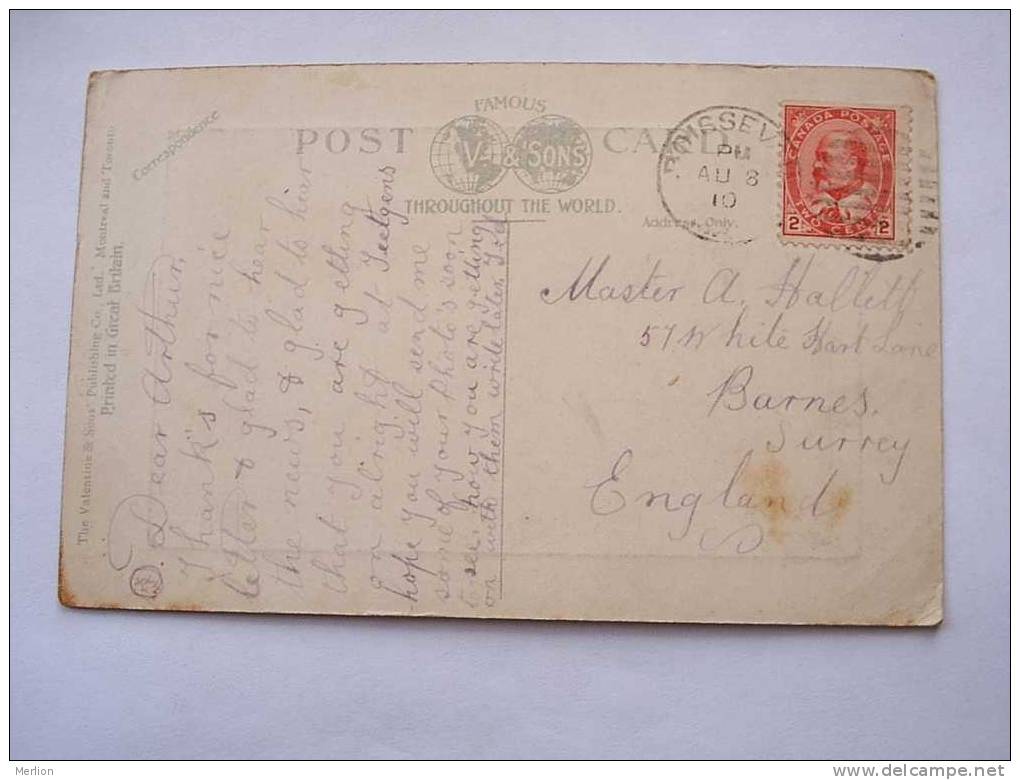 FAMOUS
POST CARD
V. & SONS
THROUGHOUT THE WORLD.
Correspondence
Address Only.
BOISSEV
PM
AU 8
10
CANADA POSTAGE
2 TWO CENTS 2
The Valentine & Sons' Publishing Co., Ltd., Montreal and Toronto
Printed in Great Britain.
Dear Arthur,
Thank's for nice
letter & glad to hear
the news, & glad to hear
that you are getting
on alright at
hope you will send me
some of your photo's soon
to see how you are getting
on with them write later.
Master A. Hallett
57 White Hart Lane
Barnes.
Surrey
England
Merlion
www.delcampe.net